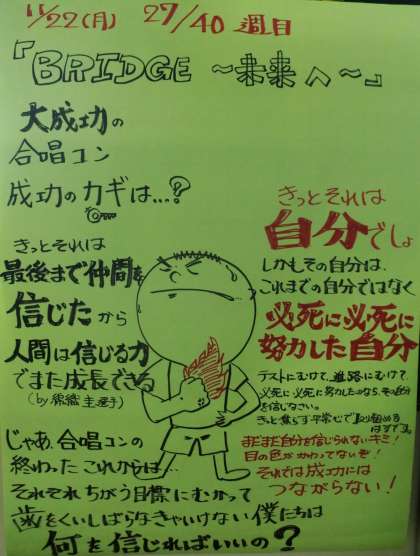 11/22(月) 27/40 週目
『BRIDGE ～未来へ～』
大成功の
合唱コン
成功のカギは…?
きっとそれは
最後まで仲間を
信じたから
人間は信じる力
でまた成長できる
(by 錦織圭選手)
じゃあ、合唱コンの
終わったこれからは…
それぞれちがう目標にむかって
歯をくいしばらなきゃいけない僕たちは
何を信じればいいの?
きっとそれは
自分でしょ
しかもその自分は、
これまでの自分ではなく
必死に必死に
努力した自分
テストにむけて、進路にむけて、
必死に必死に努力したなら、その自分
を信じなさい。
きっと焦らず平常心で
はずです。
まだまだ自分を信じられないキミ!
目の色がかわってないぞ!
それでは成功には
つながらない!